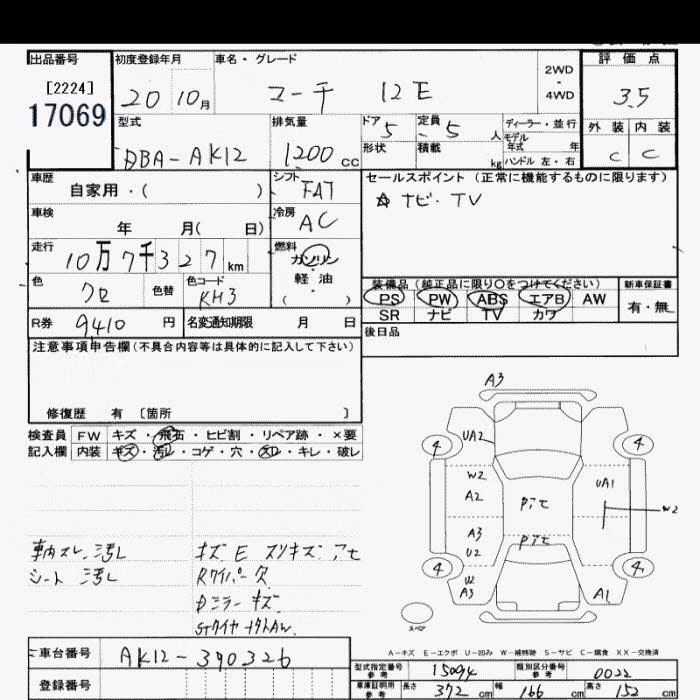 出品番号 初度登録年月 車名・グレード 2WD ・ 4WD 評価点
[2224]
17069 20 10月 マーチ 12E 3.5
型式 排気量 ドア 定員 ディーラー・並行 外装 内装
DBA-AK12 1200cc 5 5人 モデル年式 年 C C
形状 積載 kg ハンドル 左・右
車歴 自家用・( ) シフト FAT セールスポイント (正常に機能するものに限ります)
車検 年 月( 日) 冷房 AC ☆ナビ・TV
走行 10万7千327km 燃料 ガソリン 軽・油 ( )
色 クロ 色替 色コード KH3 装備品 (純正品に限り○をつけてください) 新車保証書
PS PW ABS エアB AW 有・無
R券 9410円 名変通知期限 月 日 SR ナビ TV カワ
注意事項申告欄(不具合内容等は具体的に記入して下さい) 後日品
修復歴 有 〔箇所 〕
検査員 FW キズ・飛石・ヒビ割・リペア跡・×要
記入欄 内装 キズ・汚レ・コゲ・穴・スレ・キレ・破レ
A3
4 UA2 4
W2 UA1
A2 ピセ W2
A3 ピセ
U2
4 U2 4
A3 A1
スペア
車内スレ、汚レ キズ E スリキズ アセ
シート 汚レ Rワイパー欠
Dミラーキズ
A-キズ E-エクボ U-凹み W-補修跡 S-サビ C-腐食 XX-交換済
車台番号 AK12-390326 型式指定番号 参考 15094 類別区分番号 参考 0022
登録番号 車庫証明用 参考 長さ 372cm 幅 166cm 高さ 152cm